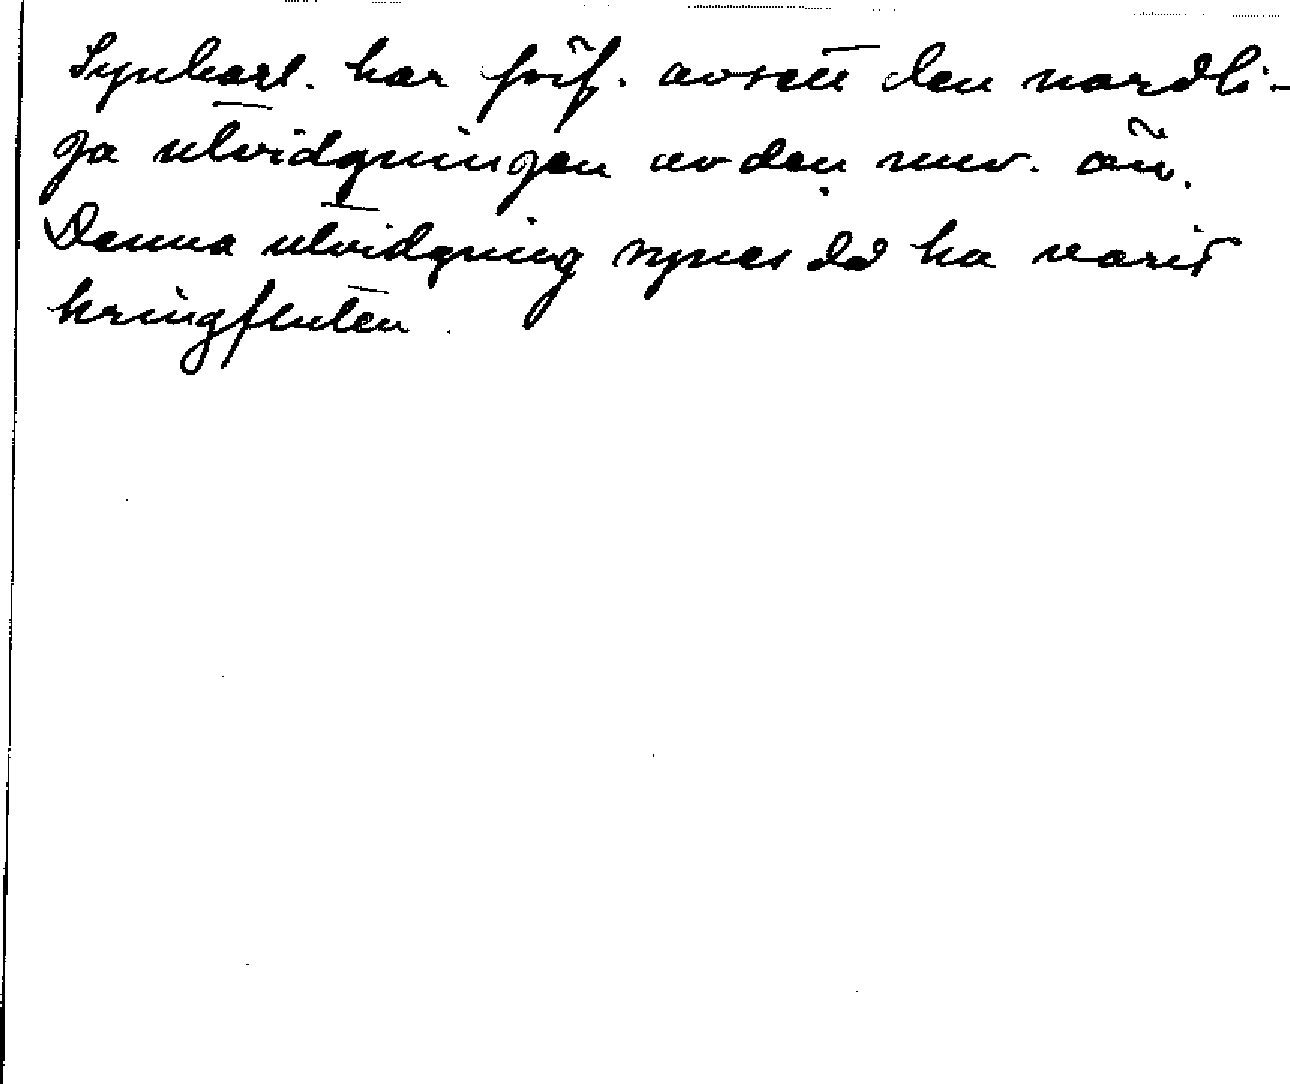 Synbarl. har förf. avsett den nordli-
ga utvidgningen av den nuv. ön.
Denna utvidgning synes då ha varit
kringfluten.